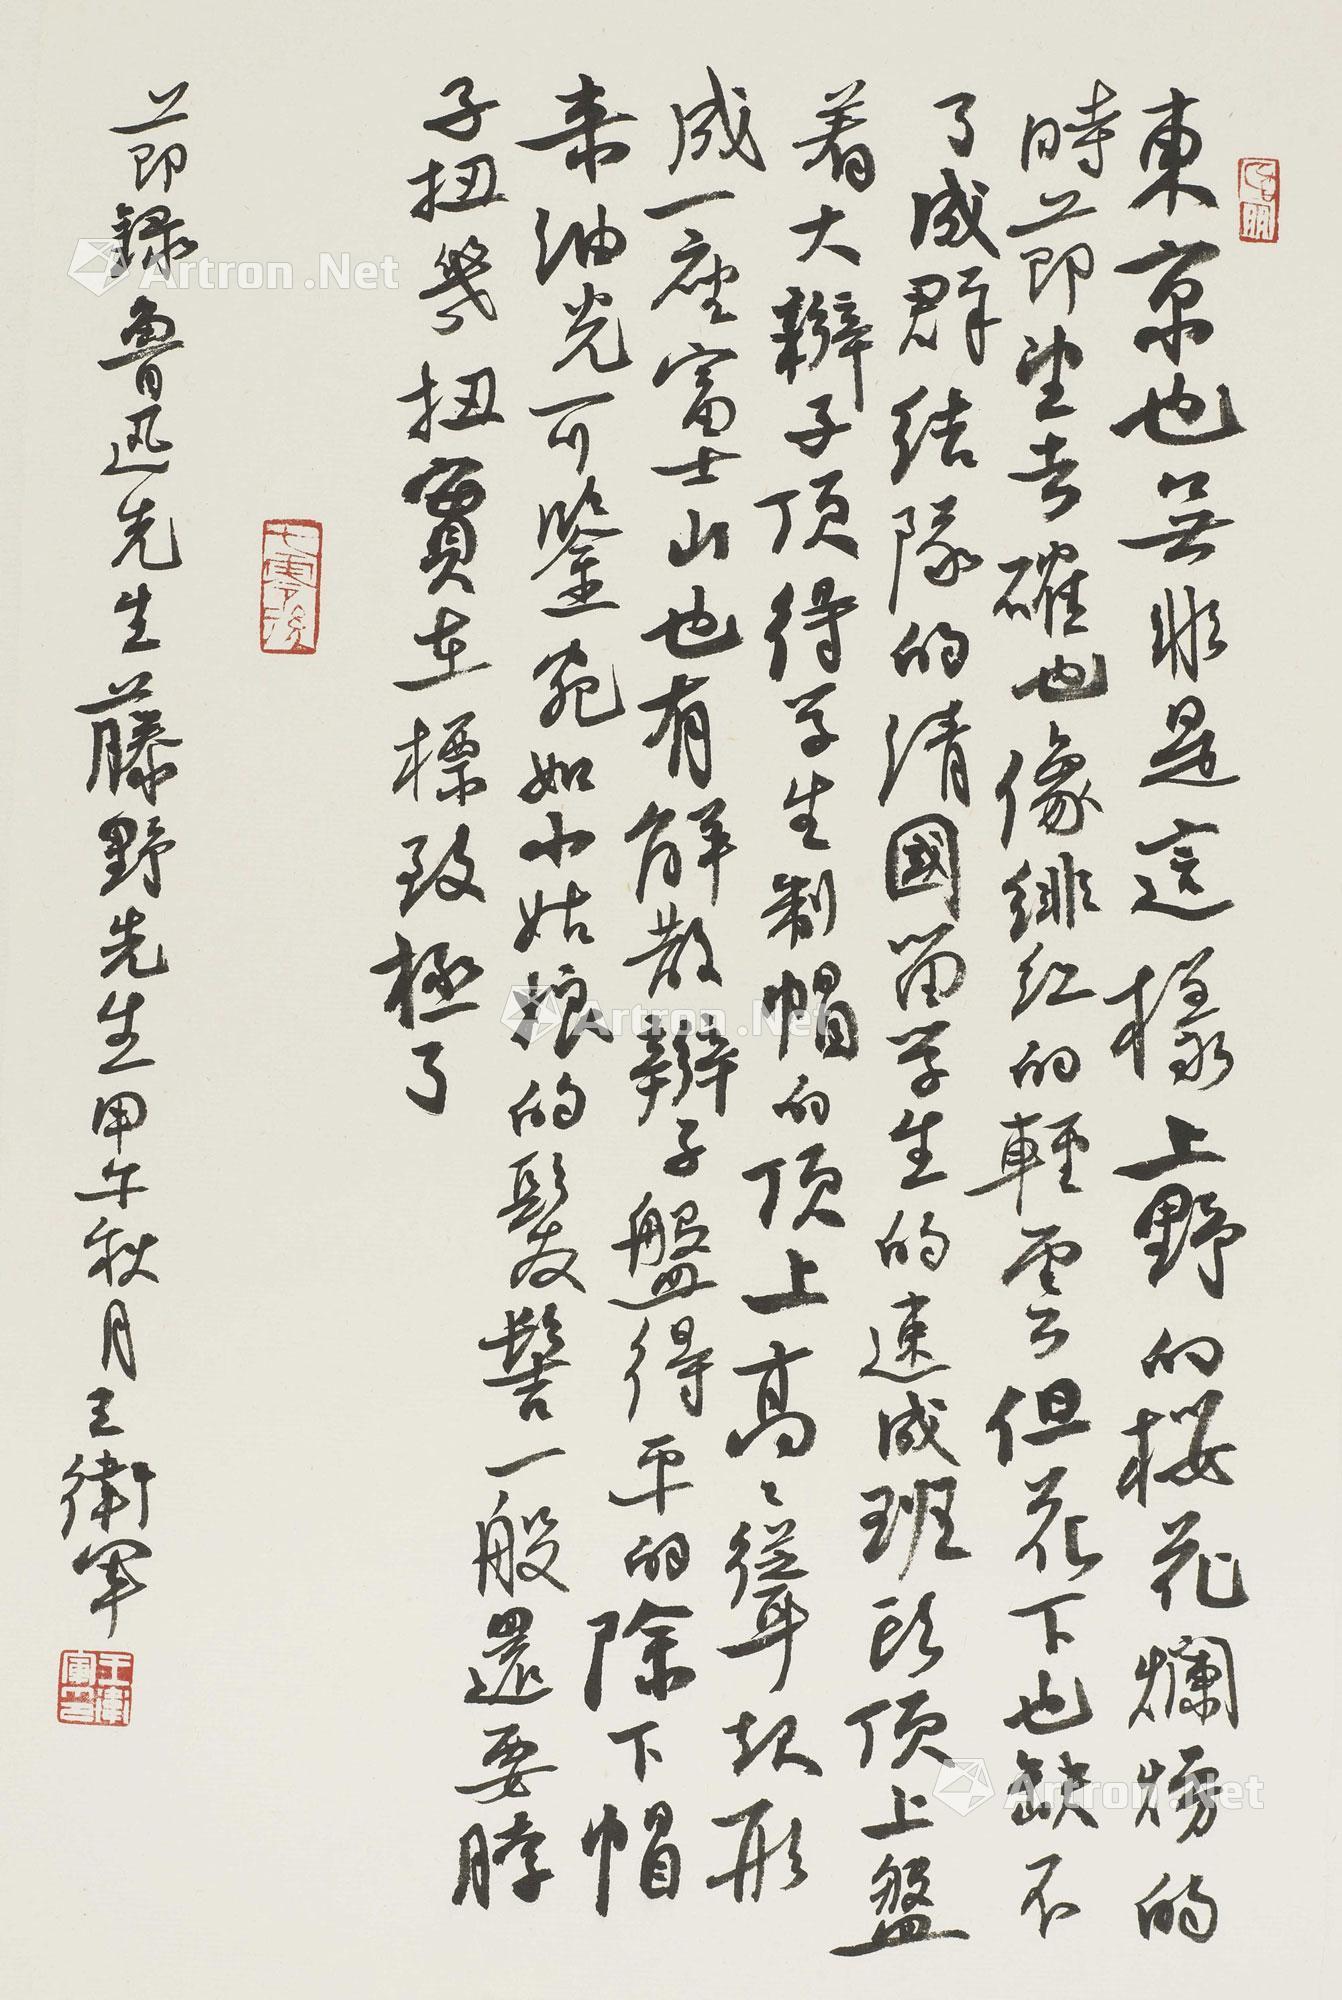 東京也無非是這樣上野的櫻花爛熳的
時節望去確也像緋紅的輕雲但花下也缺不
了成群結隊的清國留学生的速成班頭頂上盤
着大辮子頂得学生制帽的頂上高々聳起形
成一座富士山也有解散辮子盤得平的除下帽
来油光可鑒宛如小姑娘的髮髻一般還要脖
子扭幾扭實在標致極了
節録魯迅先生藤野先生甲午秋月王衛軍
王衛軍印
Artron.Net
Artron.Net
Artron.Net